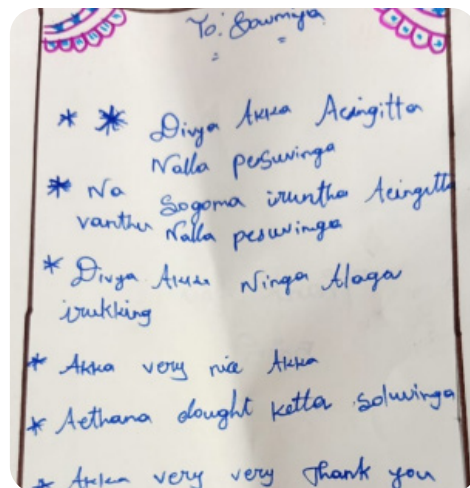 To: Sowmiya
* * Divya Akka Aengitta
Nalla pesuvinga
* Na Sogoma iruntha Aengitta
vanthu Nalla pesuvinga
* Divya Akka Ninga Alaga
irukking
* Akka very nice Akka
* Aethana dought ketta soluvinga
* Akka very very Thank you